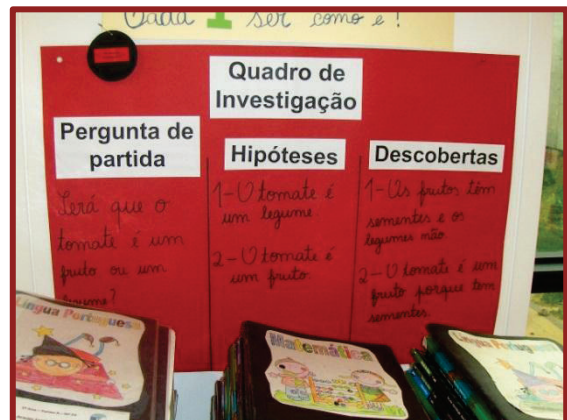 Cada 1 ser como é!
Quadro de
Investigação
Pergunta de
partida
Será que o
tomate é um
fruto ou um
legume?
Hipóteses
1-O tomate é
um legume.
2-O tomate é
um fruto.
Descobertas
1-Os frutos têm
sementes e os
legumes não.
2-O tomate é um
fruto porque tem
sementes.
Língua Portuguesa
Matemática
Língua Portuguesa